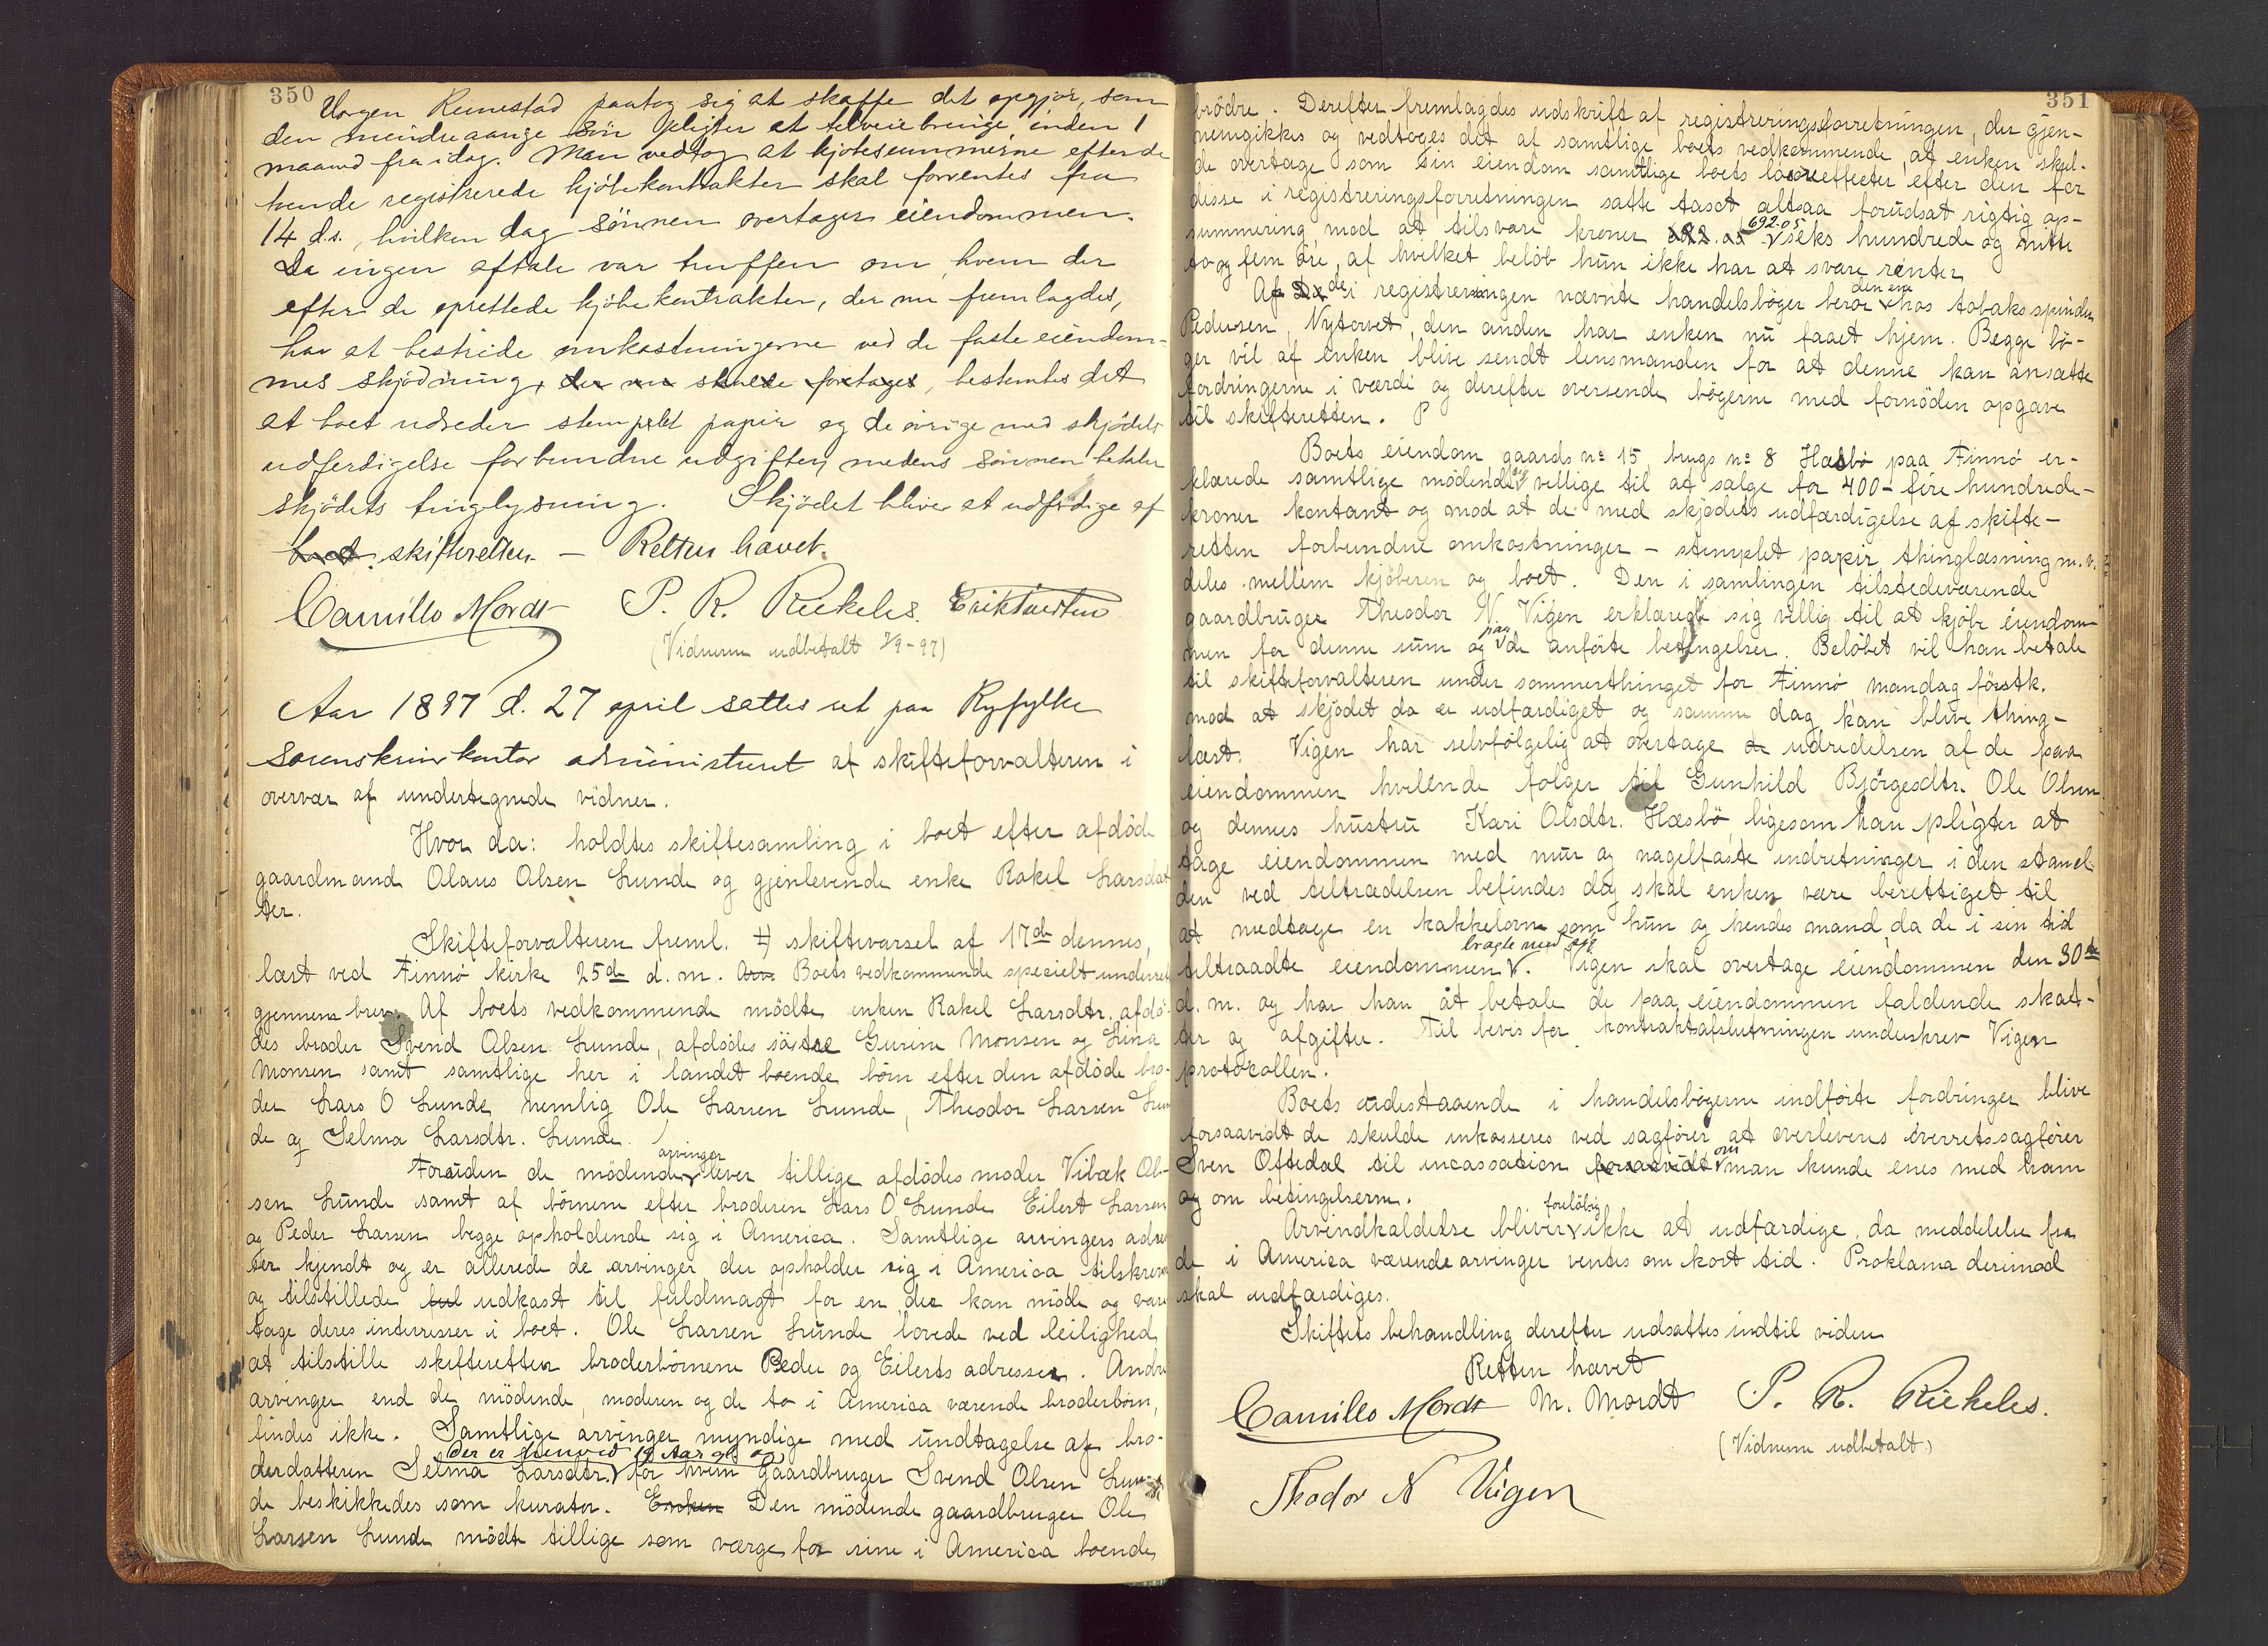 350
Vergen Runestad paatog sig at skaffe det opgjør, som
den mindreaarige søn pligter at tilveiebringe, inden 1
maaned fra idag. Man vedtog at kjøbesummerne efter de
tvende registrerede kjøbekontrakter skal forrentes fra
14 d.s., hvilken dag sønnen overtager eiendommen.
Da ingen aftale var truffen om, hvem der
efter de oprettede kjøbekontrakter, der nu fremlagdes,
har at bestride omkostningerne ved de faste eiendom-
mes skjødning, der nu skulde foretages, bestemtes det
at boet udreder stemplet papir og de øvrige med skjødets
udferdigelse forbundne udgifter, medens sønnen betaler
skjødets tinglysning. Skjødet bliver at udferdige af
boet skifteretten. — Retten hævet.
Camillo Mordt P. R. Riekeles.
(Vidnerne udbetalt 7/9-97)
Aar 1897 d. 27 april sattes ret paa Ryfylke
Sorenskriverkontor administreret af skifteforvalteren i
overvær af undertegnede vidner.
Hvor da: holdtes skiftesamling i boet efter afdøde
gaardmand Olaus Olsen Lunde og gjenlevende enke Rakel Larsdat
ter.
Skifteforvalteren freml. 1) skiftevarsel af 17de dennes,
læst ved Finnø kirke 25de d. m. Boets vedkommende specielt underret
gjennem brev. Af boets vedkommende mødte enken Rakel Larsdtr. afdø-
des broder Svend Olsen Lunde, afdødes søstre Gurine Monsen og Lina
Monsen samt samtlige her i landet boende børn efter den afdøde bro-
der Lars O Lunde, nemlig Ole Larsen Lunde, Theodor Larsen Lun
de og Selma Larsdtr. Lunde.
arvinger
Foruden de mødende lever tillige afdødes moder Vibæk Ol-
sen Lunde samt af børnene efter broderen Lars O Lunde Eilert Larsen
og Peder Larsen begge opholdende sig i America. Samtlige arvingers adres
ser kjendt og er allerede de arvinger der opholder sig i America tilskrevne
og tilstillede udkast til fuldmagt for en, der kan møde og vare
tage deres interesser i boet. Ole Larsen Lunde lovede ved leilighed
at tilstille skifteretten broderbørnene Peder og Eilerts adresser. Andre
arvinger end de mødende, moderen og de to i America værende broderbørn,
findes ikke. Samtlige arvinger myndige med undtagelse af bro-
der er henved 19 Aar gl. og
derdatteren Selma Larsdtr. for hvem gaardbruger Svend Olsen Lun
de beskikkedes som kurator. Enken Den mødende gaardbruger Ole
Larsen Lunde mødte tillige som værge for sine i America boende
351
brødre. Derefter fremlagdes udskrift af registreringsforretningen, der gjen-
nemgikkes og vedtoges det af samtlige boets vedkommende, at enken skul-
de overtage som sin eiendom samtlige boets løsøreeffecter efter den for
disse i registreringsforretningen satte taxt altsaa forudsat rigtig op-
692.05
summering, mod at tilsvare kroner seks hundrede og nitti
to og fem øre, af hvilket beløb hun ikke har at svare renter
den ene
Af de i registreringen nævnte handelsbøger beror hos tobaksspinder
Pedersen, Nytorvet, den anden har enken nu faaet hjem. Begge bø-
ger vil af enken blive sendt lensmanden for at denne kan ansætte
fordringerne i værdi og derefter oversende bøgerne med fornøden opgave
til skifteretten.
Boets eiendom gaards no 15 brugs no 8 Hæsbø paa Finnø er-
sig
klærede samtlige mødende villige til at sælge for 400 - fire hundrede -
kroner kontant og mod at de med skjødets udfærdigelse af skifte-
retten forbundne omkostninger - stemplet papir thinglæsning m. v.
deles mellem kjøberen og boet. Den i samlingen tilstedeværende
gaardbruger Theodor N. Vigen erklærede sig villig til at kjøbe eiendom-
paa
men for denne sum og de anførte betingelser. Beløbet vil han betale
til skifteforvalteren under sommerthinget for Finnø mandag førstk.
mod at skjødet da er udfærdiget og samme dag kan blive thing-
læst. Vigen har selvfølgelig at overtage udredelsen af de paa
eiendommen hvilende folger til Gunhild Bjørgesdtr. Ole Olsen
og dennes hustru Kari Olsdtr. Hæsbø, ligesom han pligter at
tage eiendommen med mur og nagelfaste indretninger i den stand
den ved tiltrædelsen befindes dog skal enken være berettiget til
at medtage en kakkelovn som hun og hendes mand, da de i sin tid
bragte med sig
tiltraadte eiendommen. Vigen skal overtage eiendommen den 30te
d. m. og har han at betale de paa eiendommen faldende skat-
ter og afgifter. Til bevis for kontraktafslutningen underskrev Vigen
protocollen.
Boets udestaaende i handelsbøgerne indførte fordringer blive
forsaavidt de skulde inkasseres ved sagfører at overleveres overretssagfører
om
Sven Oftedal til incassation forsaavidt man kunde enes med ham
og om betingelserne.
foreløbig
Arvindkaldelse bliver ikke at udfærdige, da meddelelse fra
de i America værende arvinger ventes om kort tid. Proklama derimod
skal udfærdiges.
Skiftets behandling derefter udsattes indtil videre
Retten hævet
Camillo Mordt M. Mordt P. R. Riekeles.
(Vidnerne udbetalt)
Thodor N Vigen